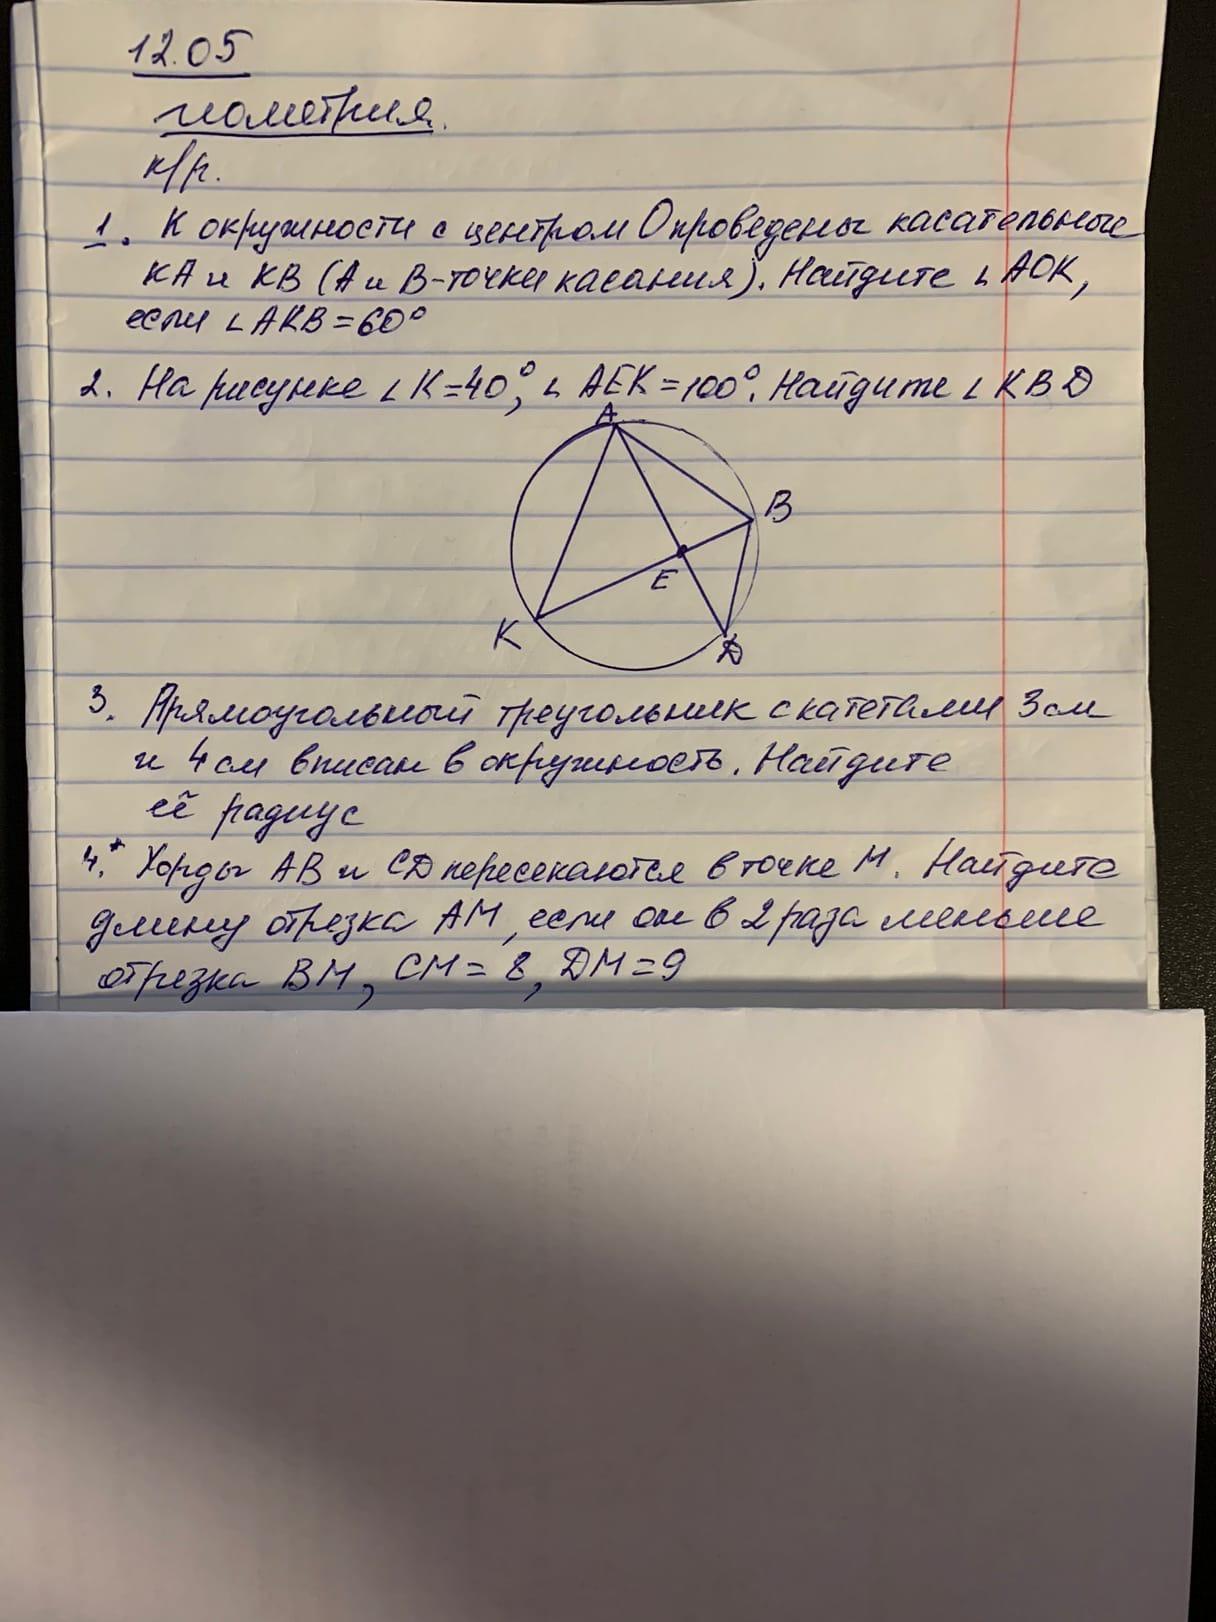 12.05
геометрия.
к/р.
1. К окружности с центром О проведены касательные
КА и КВ (А и В-точки касания). Найдите ∠АОК,
если ∠АКВ=60°
2. На рисунке ∠К=40°, ∠АЕК=100°. Найдите ∠КВD
А
В
Е
К
D
3. Прямоугольный треугольник с катетами 3см
и 4см вписан в окружность. Найдите
её радиус
4.* Хорды АВ и CD пересекаются в точке М. Найдите
длину отрезка АМ, если он в 2 раза меньше
отрезка ВМ, СМ=8, DМ=9